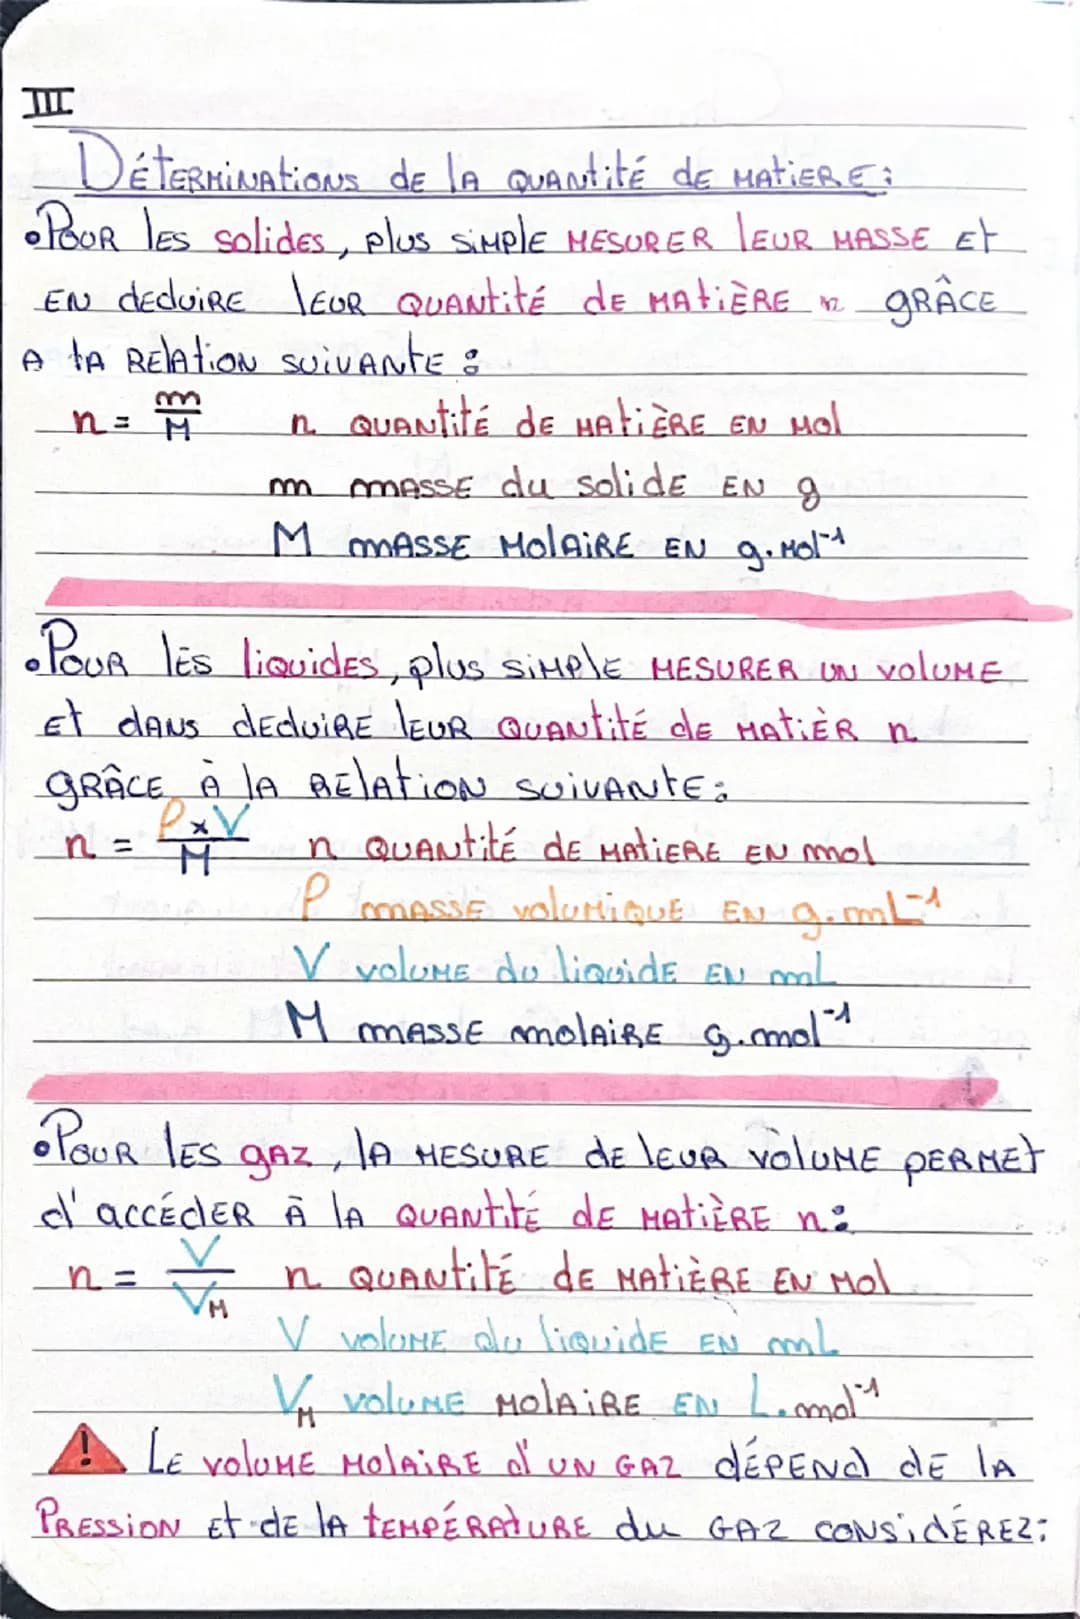 III
Déterminations de la quantité de matiere :
• Pour les solides, plus simple mesurer leur masse et
en deduire leur quantité de matière n grâce
a ta relation suivante :
n = m/M n quantité de matière en mol
m masse du solide en g
M masse molaire en g.mol⁻¹
• Pour les liquides, plus simple mesurer un volume
et dans deduire leur quantité de matièr n
grâce à la relation suivante :
n = ρ×V/M n quantité de matiere en mol
ρ masse volumique en g.mL⁻¹
V volume du liquide en mL
M masse molaire g.mol⁻¹
• Pour les gaz, la mesure de leur volume permet
d'accéder à la quantité de matière n :
n = V/VM n quantité de matière en mol
V volume du liquide en mL
VM volume molaire en L.mol⁻¹
! Le volume molaire d'un gaz dépend de la
pression et de la température du gaz considérez :